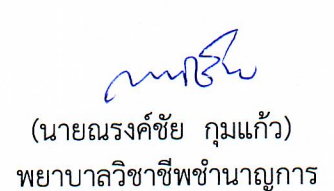 (นายณรงค์ชัย กุมแก้ว)
พยาบาลวิชาชีพชำนาญการ